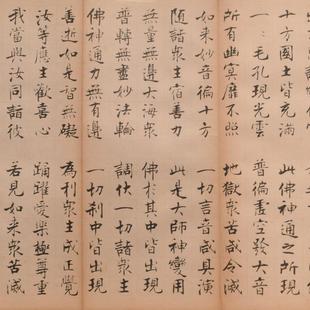 十方國土皆充滿 此佛神通之所現
一一毛孔現光雲 普徧虛空發大音
所有幽冥靡不照 地獄衆苦咸令滅
如來妙音徧十方 一切言音咸具演
随諸衆生宿善力 此是大師神變用
無量無邊大海衆 佛於其中皆出現
普轉無盡妙法輪 調伏一切諸衆生
佛神通力無有邊 一切刹中皆出現
善逝如是智無礙 為利衆生成正覺
汝等應生歡喜心 踊躍愛樂極尊重
我當與汝同詣彼 若見如来衆苦滅